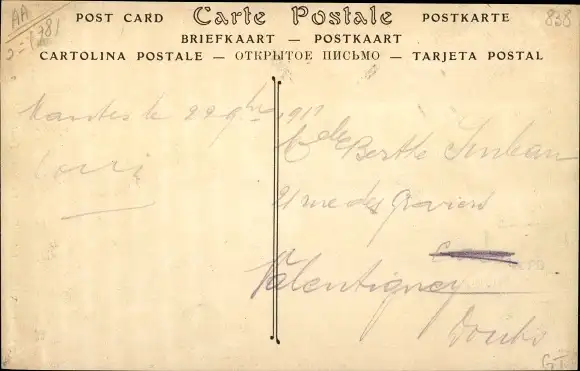 AA
838
POST CARD Carte Postale POSTKARTE
BRIEFKAART — POSTKAART
CARTOLINA POSTALE — ОТКРЫТОЕ ПИСЬМО — TARJETA POSTAL
Nantes le 22 9bre 1911
Berthe
21 rue des Graviers
Valentigney
Doubs
GT